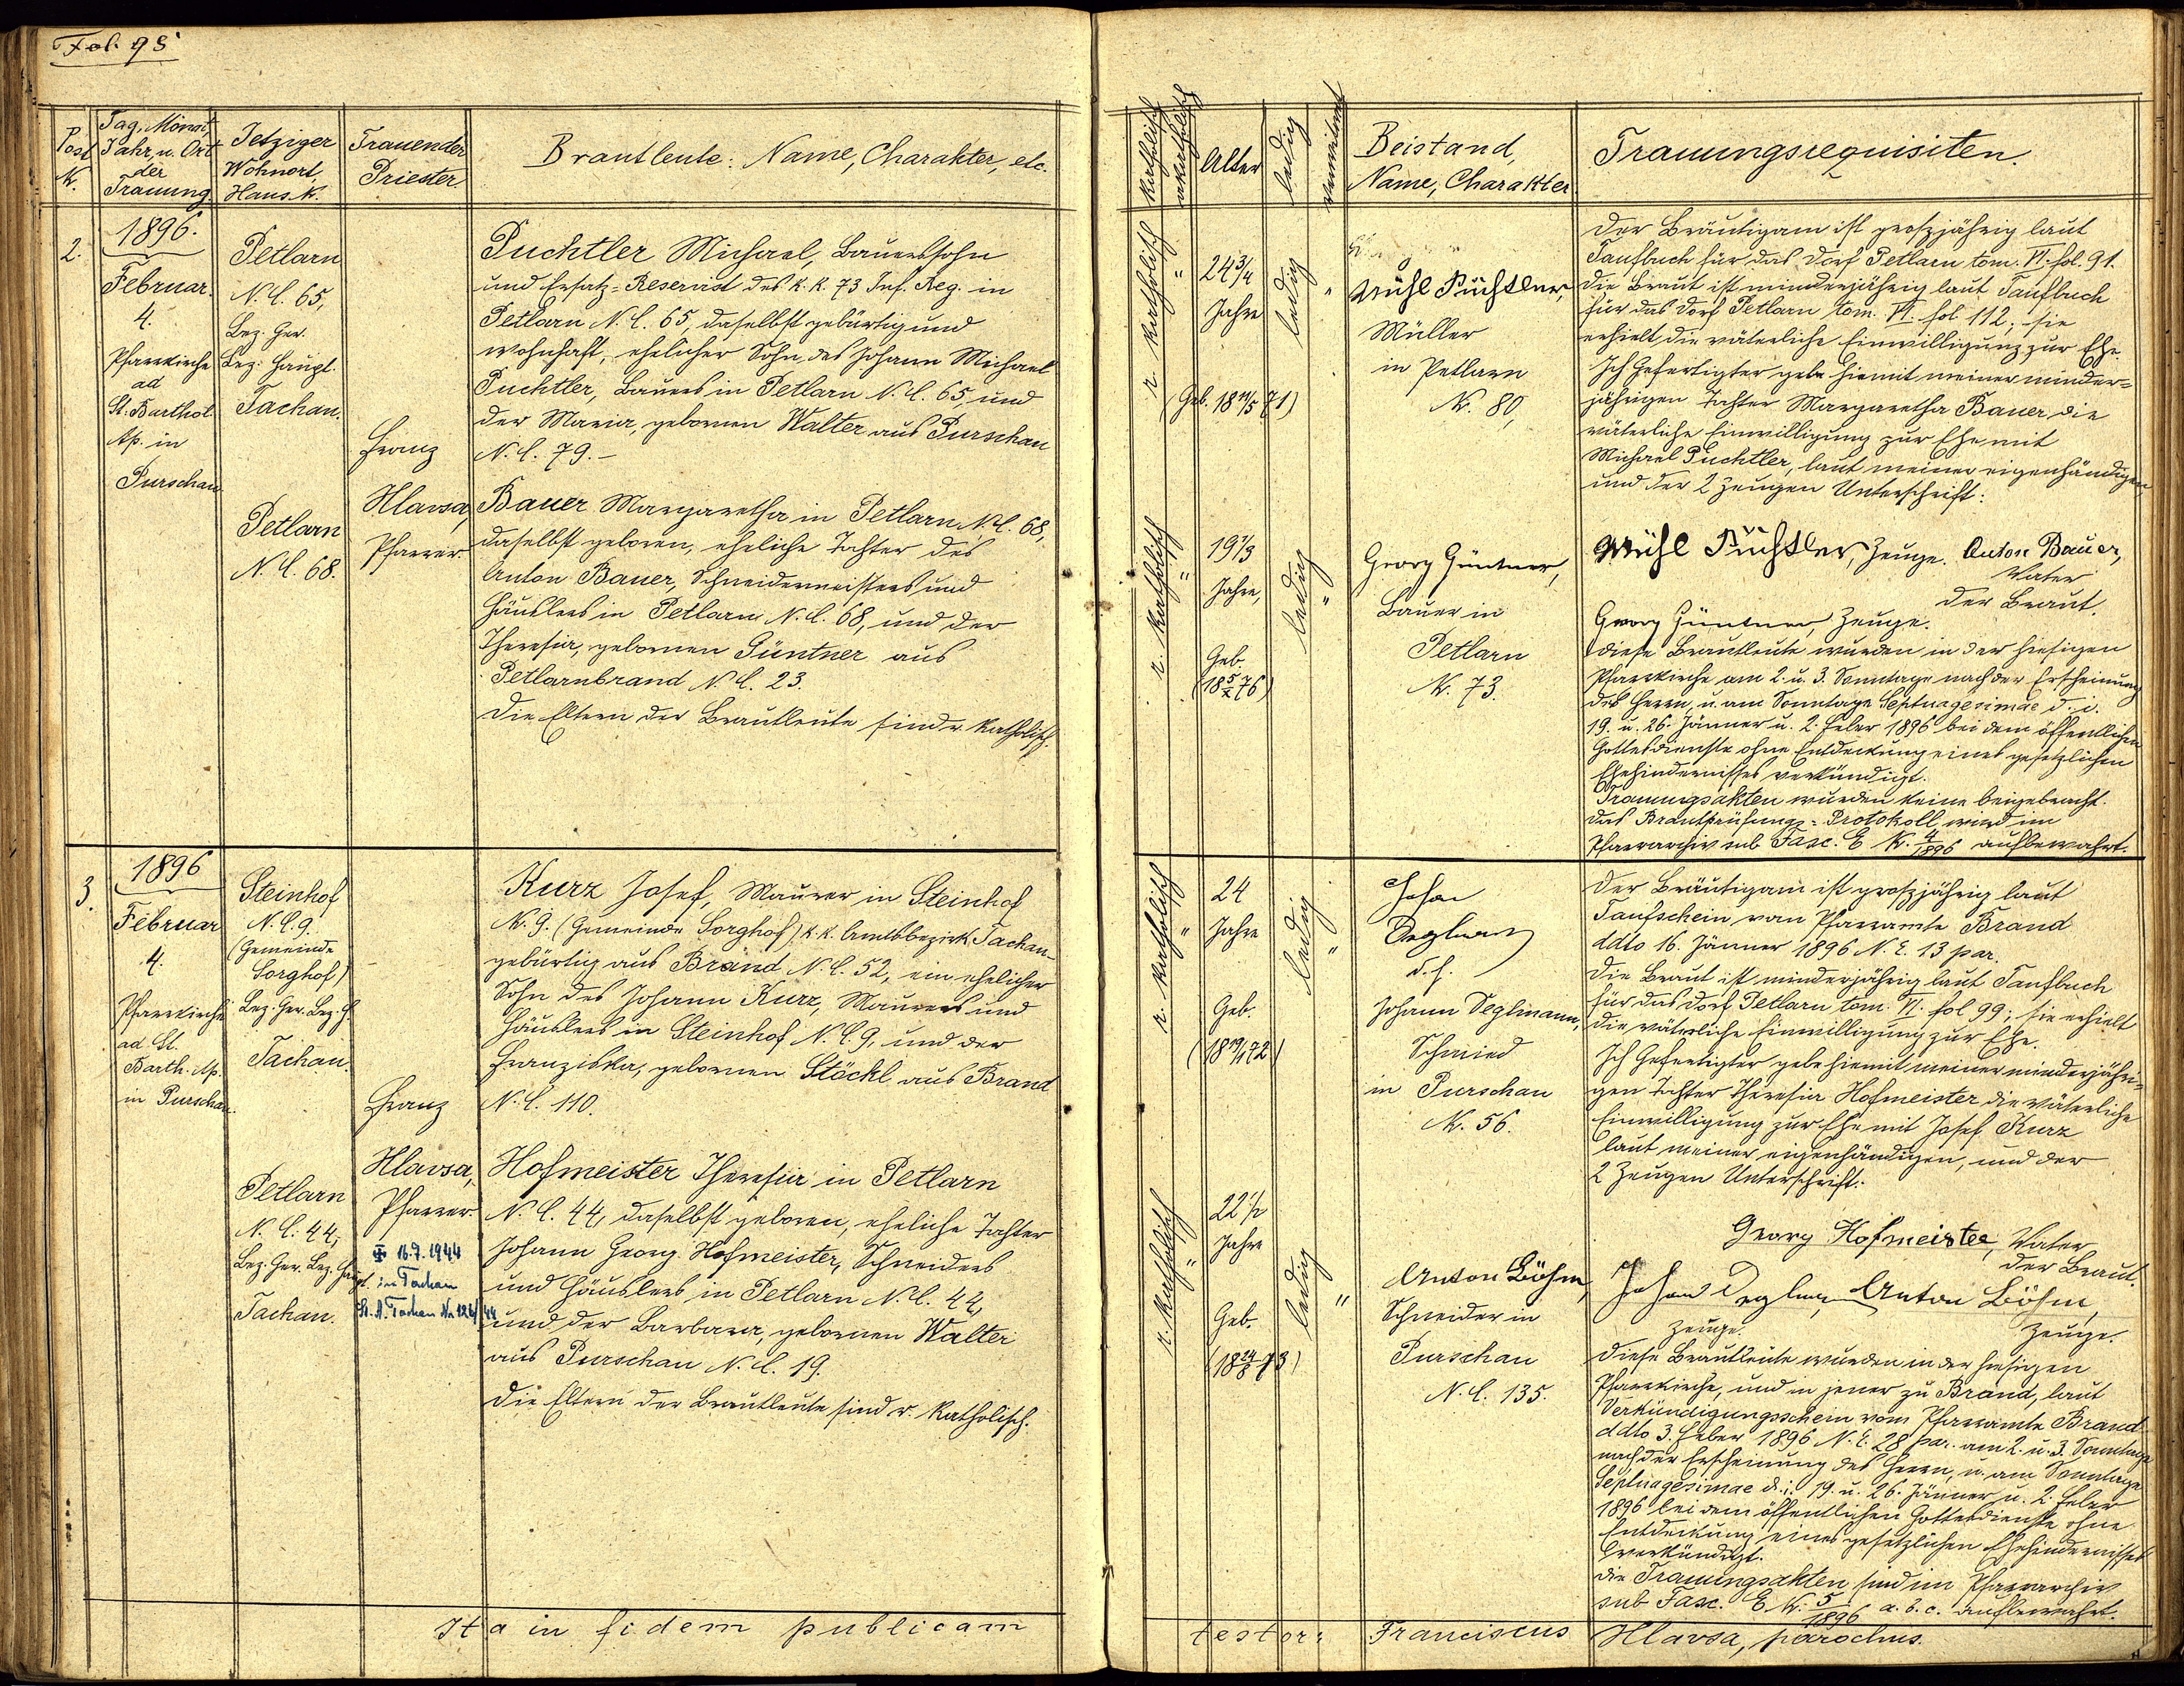 Fol. 95
Post N.
Tag, Monat,
Jahr, u. Ort
der
Trauung.
Jetziger
Wohnort,
Haus N.
Trauender
Priester
Brautleute: Name, Charakter, etc.
2.
1896.
Februar.
4.
Pfarrkirche
ad
St. Barthol.
Ap. in
Purschau
Petlarn
N. C. 65,
Bez. Ger.
Bez. Haupt.
Tachau.
Petlarn
N. C. 68.
Franz
Hlavsa,
Pfarrer.
Puchtler Michael, Bauerssohn
und Ersatz-Reservist des k. k. 73 Inf. Reg. in
Petlarn N. C. 65, daselbst gebürtig und
wohnhaft, ehelicher Sohn des Johann Michael
Puchtler, Bauers in Petlarn N. C. 65, und
der Maria, gebornen Walter aus Purschau
N. C. 79.-
Bauer Margaretha in Petlarn N. C. 68,
daselbst geboren, eheliche Tochter des
Anton Bauer, Schneidermeisters und
Häuslers in Petlarn N. C. 68, und der
Theresia, gebornen Güntner aus
Petlarnbrand N. C. 23.
Die Eltern der Brautleute sind r. katholisch.
3.
1896
Februar
4.
Pfarrkirche
ad St.
Barth. Ap.
in Purschau.
Steinhof
N. C. 9.
(Gemeinde
Sorghof)
Bez. Ger. Bez. H.
Tachau.
Petlarn
N. C. 44,
Bez. Ger. Bez. Haupt.
Tachau.
Franz
Hlavsa,
Pfarrer
✠ 16.7.1944
in Tachau
St. A. Tachau Nr. 124/44
Kurz Josef, Maurer in Steinhof
N. 9. (Gemeinde Sorghof) k. k. Amtsbezirk Tachau
gebürtig aus Brand N. C. 52, ein ehelicher
Sohn des Johann Kurz, Maurers und
Häuslers in Steinhof N. C. 9, und der
Franziska, gebornen Stöckl aus Brand
N. C. 110.
Hofmeister Theresia in Petlarn
N. C. 44, daselbst geboren, eheliche Tochter
Johann Georg Hofmeister, Schneiders
und Häuslers in Petlarn N. C. 44,
und der Barbara, gebornen Walter
aus Purschau N. C. 19.
Die Eltern der Brautleute sind r. katholisch.
Ita in fidem publicam
katholisch
akatholisch
Alter
ledig
verwitwet
Beistand,
Name, Charakter
Trauungsrequisiten.
r. katholisch
24 3/4
Jahre
(Geb. 18 11/5 71)
ledig
Michl Püchtler,
Müller
in Petlarn
N. 80,
r. katholisch
19 1/3
Jahre,
Geb.
(18 5/X 76)
ledig
Georg Güntner,
Bauer in
Petlarn
N. 73.
Der Bräutigam ist großjährig laut
Taufbuch für das Dorf Petlarn tom. VI. fol. 91.
Die Braut ist minderjährig laut Taufbuch
für das Dorf Petlarn tom. VI. fol 112; sie
erhielt die väterliche Einwilligung zur Ehe.
Ich Gefertigter gebe hiemit meiner minder-
jährigen Tochter Margaretha Bauer die
väterliche Einwilligung zur Ehe mit
Michael Puchtler, laut meiner eigenhändigen
und der 2 Zeugen Unterschrift:
Michl Püchtler, Zeuge. Anton Bauer,
Vater
der Braut.
Georg Güntner, Zeuge.
Diese Brautleute wurden in der hiesigen
Pfarrkirche am 2. u. 3. Sonntage nach der Erscheinung
des Herrn, u. am Sonntage Septuagesimae d. i.
19. u. 26. Jänner u. 2. Feber 1896 bei dem öffentlichen
Gottesdienste ohne Entdeckung eines gesetzlichen
Ehehindernisses verkündigt.
Trauungsakten wurden keine beigebracht.
Das Brautprüfungs-Protokoll wird im
Pfarrarchiv sub Fasc. E N. 4/1896 aufbewahrt.
r. katholisch
24
Jahre
Geb.
ledig
Johan
Deglman
d. h.
Johann Deglmann,
Schmied
in Purschau
N. 56.
r. katholisch
22 1/2
Jahre
Geb.
ledig
Anton Böhm,
Schneider in
Purschau
N. C. 135.
Der Bräutigam ist großjährig laut
Taufschein vom Pfarramte Brand
ddto 16. Jänner 1896 N. E. 13 par.
Die Braut ist minderjährig laut Taufbuch
für das Dorf Petlarn tom. VI. fol 99; sie erhielt
die väterliche Einwilligung zur Ehe.
Ich Gefertigter gebe hiemit meiner minderjähri-
gen Tochter Theresia Hofmeister die väterliche
Einwilligung zur Ehe mit Josef Kurz
laut meiner eigenhändigen, und der
2 Zeugen Unterschrift:
Georg Hofmeister, Vater
der Braut.
Johan Deglman Anton Böhm,
Zeuge. Zeuge.
Diese Brautleute wurden in der hiesigen
Pfarrkirche, und in jener zu Brand, laut
Verkündigungsschein vom Pfarramte Brand
ddto 3. Feber 1896 N. E. 28 par. am 2. u. 3. Sonntage
nach der Erscheinung des Herrn, u. am Sonntage
Septuagesimae d. i. 19. u. 26. Jänner u. 2. Feber
1896 bei dem öffentlichen Gottesdienste ohne
Entdeckung eines gesetzlichen Ehehindernisses
verkündigt.
Die Trauungsakten sind im Pfarrarchiv
sub Fasc. E N. 5/1896 a. b. c. aufbewahrt.
testor: Franciscus Hlavsa, parochus.